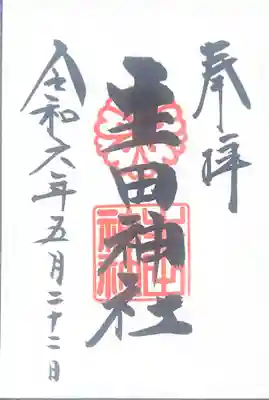 奉拝
生田神社
生田神社
令和六年五月二十二日